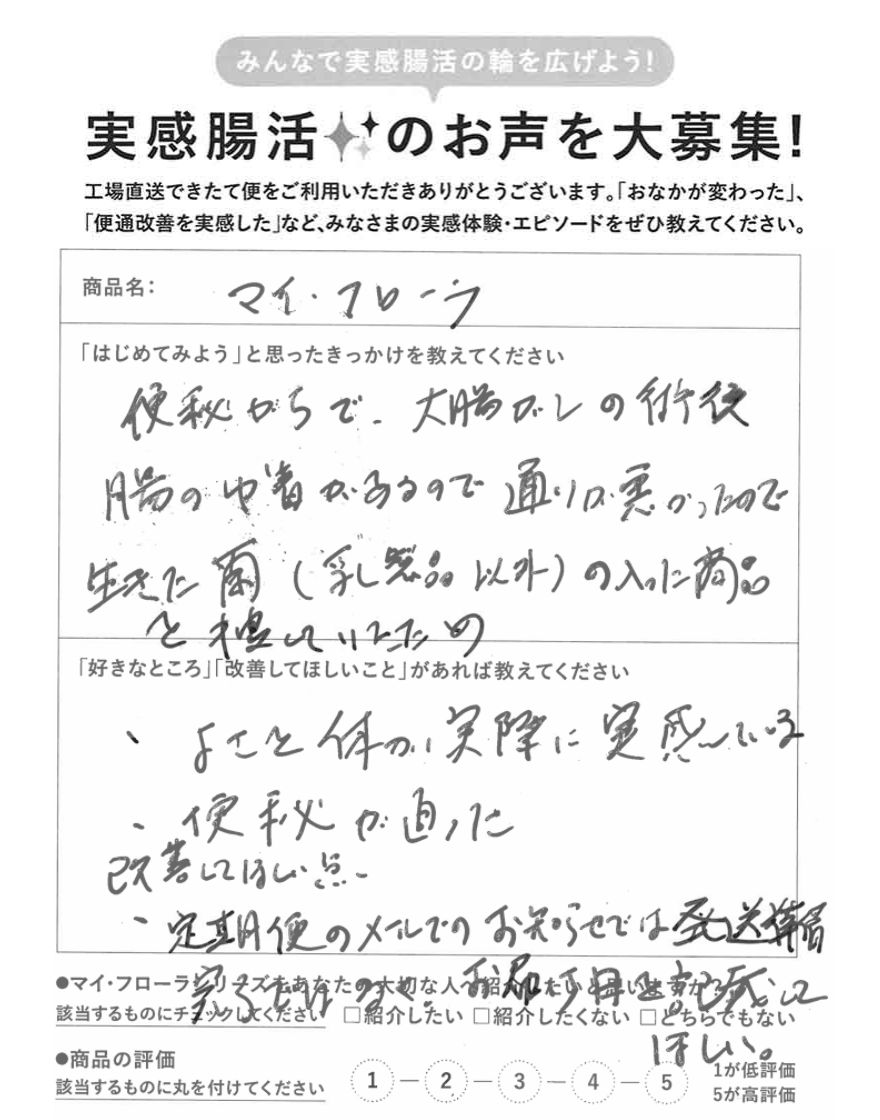 みんなで実感腸活の輪を広げよう!
実感腸活のお声を大募集!
工場直送できたて便をご利用いただきありがとうございます。「おなかが変わった」、
「便通改善を実感した」など、みなさまの実感体験・エピソードをぜひ教えてください。
商品名: マイ・フローラ
「はじめてみよう」と思ったきっかけを教えてください
便秘がちで、大腸ガンの術後
腸のゆ着があるので通りが悪かったので
生きた菌(乳製品以外)の入った商品
を捜していたため
「好きなところ」「改善してほしいこと」があれば教えてください
・よさを体が実際に実感している
・便秘が直った
改善してほしい点
・定期便のメールでのお知らせでは発送準備
完了ではなく、お届け日を記載して
ほしい。
●マイ・フローラシリーズをあなたの大切な人へ紹介したいと思いますか?
該当するものにチェックしてください □紹介したい □紹介したくない □どちらでもない
●商品の評価
該当するものに丸を付けてください 1 — 2 — 3 — 4 — 5 1が低評価
5が高評価